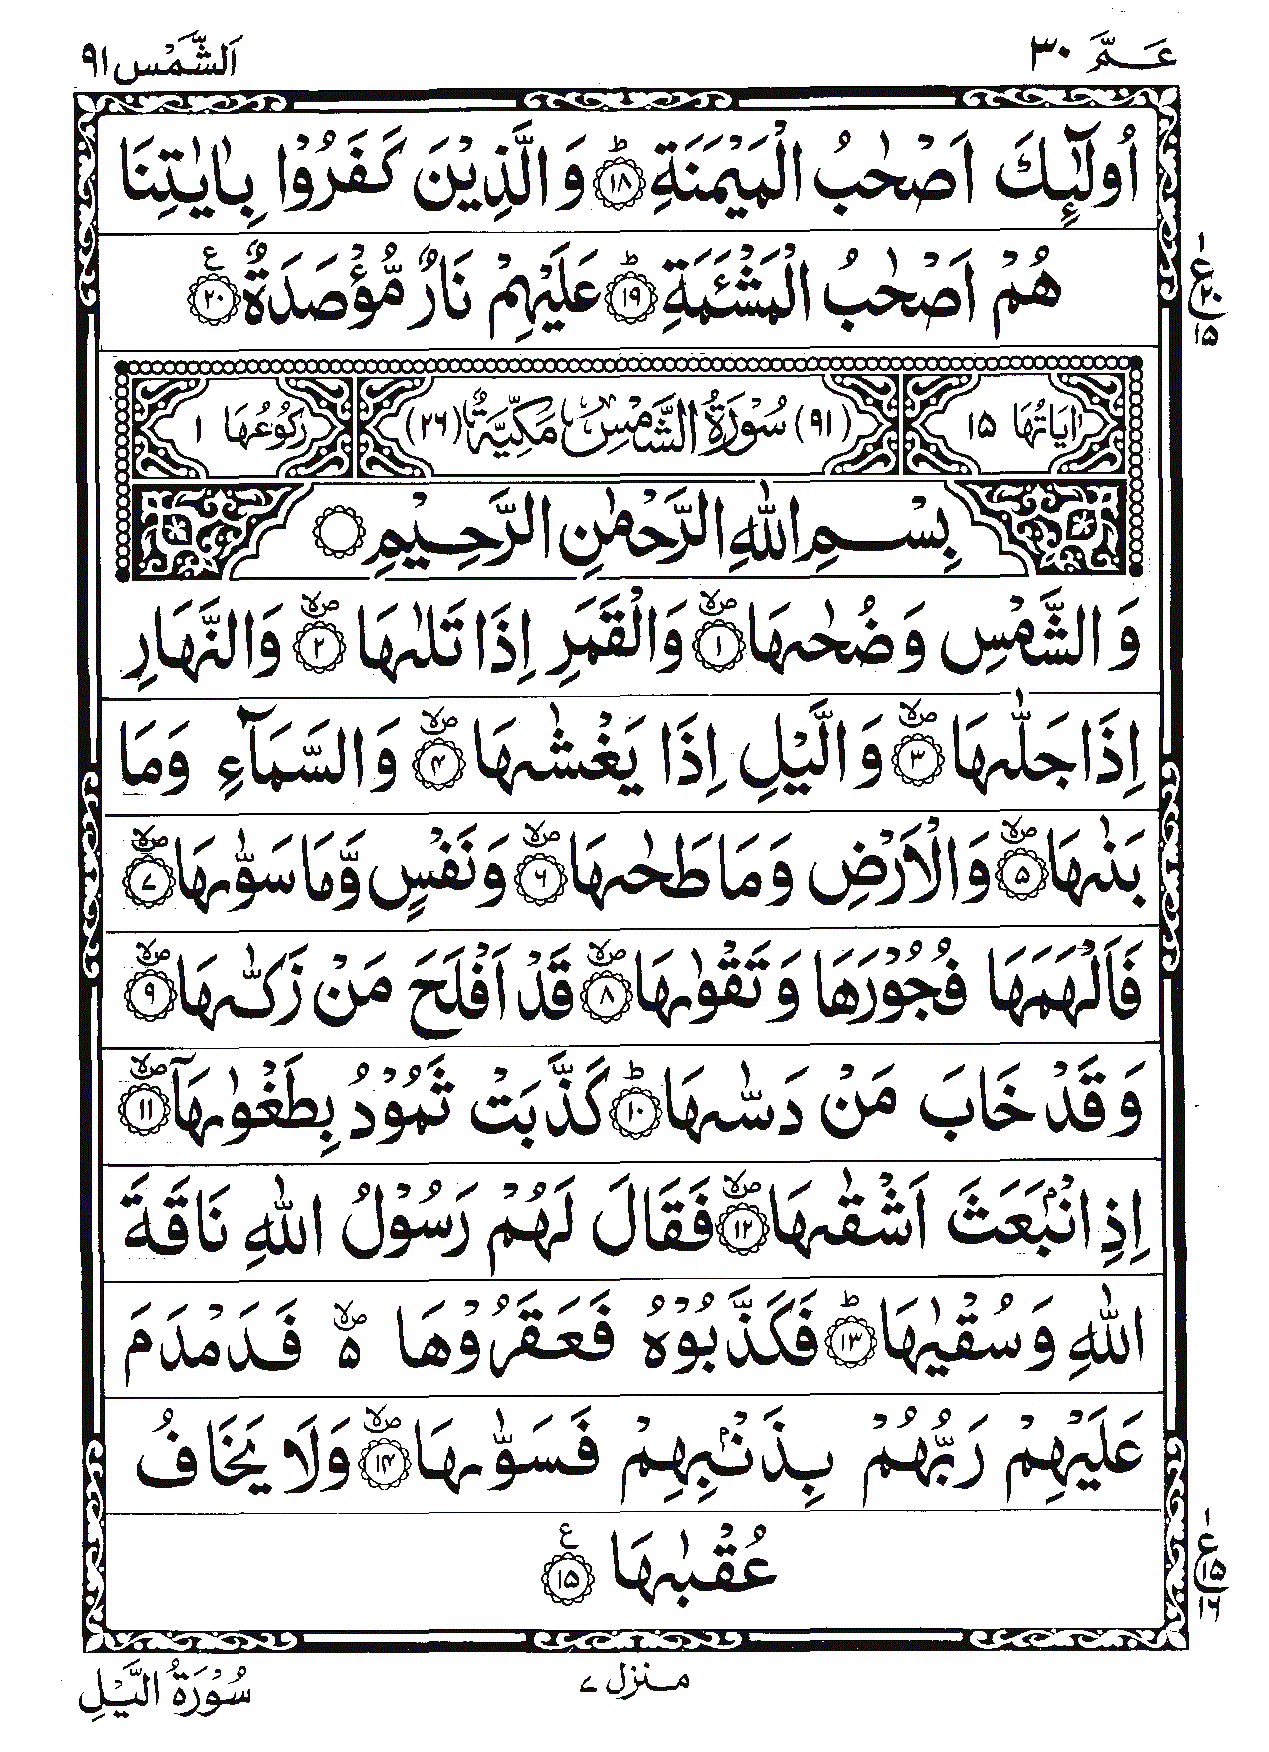 عَـمَّ ٣٠
اَلشَّمْس ٩١
اُولٰٓئِكَ اَصْحٰبُ الْمَيْمَنَةِ ؕ‏ ﴿۱۸﴾ وَالَّذِيْنَ كَفَرُوْا بِاٰيٰتِنَا
هُمْ اَصْحٰبُ الْمَشْـَٔمَةِ ؕ‏ ﴿۱۹﴾ عَلَيْهِمْ نَارٌ مُّؤْصَدَةٌ ﴿۲۰﴾ ع
١
ع ۲۰
۱۵
اٰيَاتُهَا ۱۵
(۹۱) سُوْرَةُ الشَّمْسِ مَكِّيَّةٌ (۲۶)
رُكُوْعُهَا ۱
بِسْمِ اللّٰهِ الرَّحْمٰنِ الرَّحِيْمِ
وَالشَّمْسِ وَضُحٰىهَا ۙ ﴿۱﴾ وَالْقَمَرِ اِذَا تَلٰىهَا ۙ ﴿۲﴾ وَالنَّهَارِ
اِذَا جَلّٰىهَا ۙ ﴿۳﴾ وَالَّيْلِ اِذَا يَغْشٰىهَا ۙ ﴿۴﴾ وَالسَّمَآءِ وَمَا
بَنٰىهَا ۙ ﴿۵﴾ وَالْاَرْضِ وَمَا طَحٰىهَا ۙ ﴿۶﴾ وَنَفْسٍ وَّمَا سَوّٰىهَا ۙ ﴿۷﴾
فَاَلْهَمَهَا فُجُوْرَهَا وَتَقْوٰىهَا ۙ ﴿۸﴾ قَدْ اَفْلَحَ مَنْ زَكّٰىهَا ۙ ﴿۹﴾
وَقَدْ خَابَ مَنْ دَسّٰىهَا ؕ ﴿۱۰﴾ كَذَّبَتْ ثَمُوْدُ بِطَغْوٰىهَاۤ ۙ ﴿۱۱﴾
اِذِ انْۢبَعَثَ اَشْقٰىهَا ۙ ﴿۱۲﴾ فَقَالَ لَهُمْ رَسُوْلُ اللّٰهِ نَاقَةَ
اللّٰهِ وَسُقْيٰهَا ؕ ﴿۱۳﴾ فَكَذَّبُوْهُ فَعَقَرُوْهَا ۵ۙ فَدَمْدَمَ
عَلَيْهِمْ رَبُّهُمْ بِذَنْۢبِهِمْ فَسَوّٰىهَا ۙ ﴿۱۴﴾ وَلَا يَخَافُ
عُقْبٰهَا ﴿۱۵﴾ ع
١
ع ۱۵
۱۶
منزل ۷
سُوْرَةُ الَّيْلِ